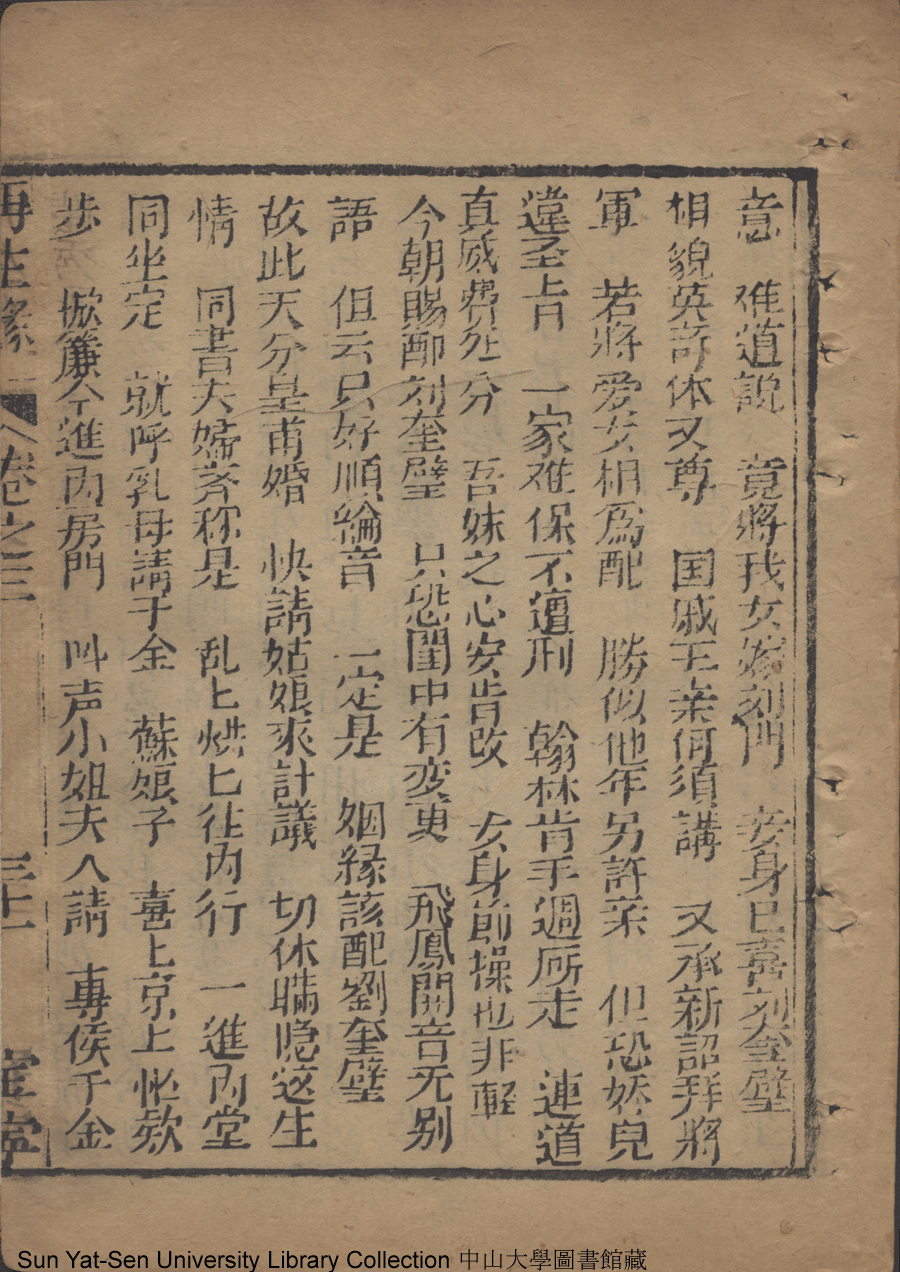 意 难道説 竟將我女嫁刘門 妾身已喜刘奎璧
相貌英竒体又尊 国戚王亲何須講 又承新詔拜將
軍 若將爱女相爲配 勝似他年另許亲 但恐娇兒
違圣旨 一家难保不遭刑 翰林肯手週厛走 連道
真威費处分 吾妹之心安肯改 女身節操也非輕
今朝賜配刘奎璧 只恐閨中有变更 飛鳳開音无别
語 但云只好順綸音 一定是 姻縁該配劉奎璧
故此天分皇甫婚 快請姑娘來計議 切休瞞隐这生
情 同書夫婦斉称是 乱匕烘匕往内行 一進内堂
同坐定 就呼乳母請千金 蘇娘子 喜上京上忙欸
歩 掀簾今進内房門 叫声小姐夫人請 專侯千金
再生縁 卷之三 三十一 宝寧
Sun Yat-Sen University Library Collection 中山大學圖書館藏